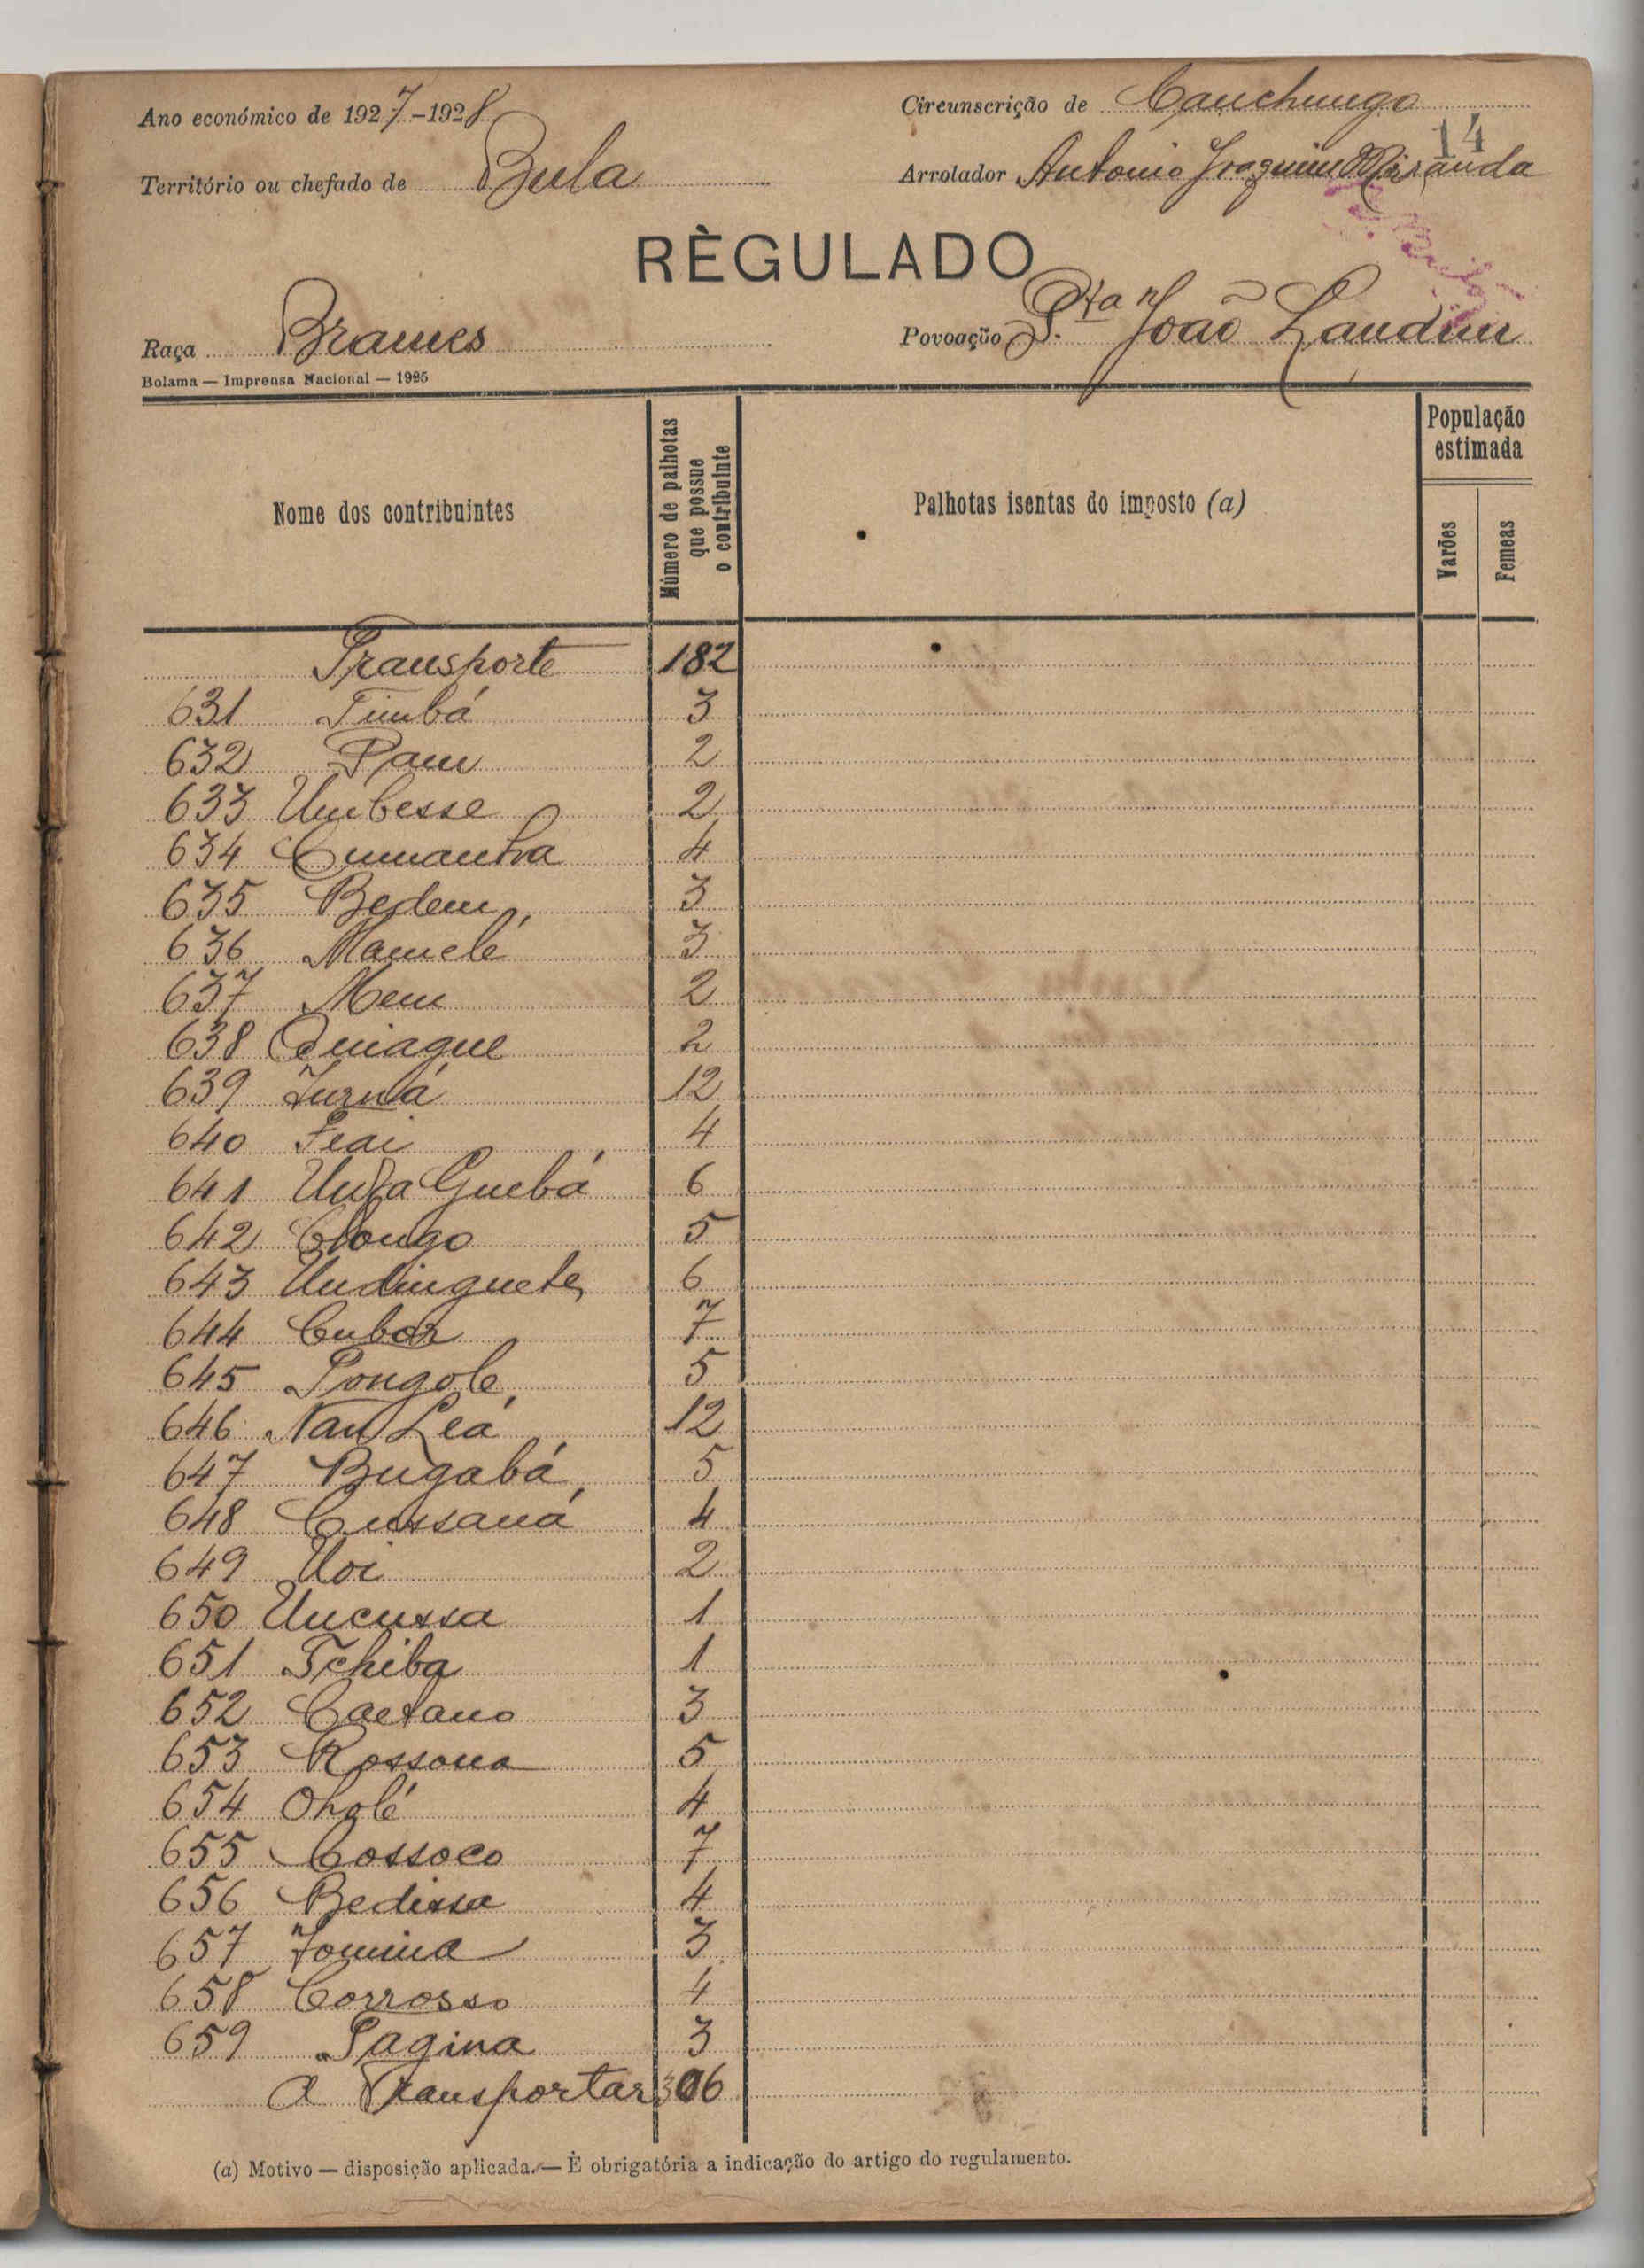 Ano económico de 1927-1928
Circunscrição de Canchungo
14
Território ou chefado de Bula
Arrolador Antonio Joaquim Miranda
RÈGULADO
Raça Brames
Povoação Pta João Landim
Bolama — Imprensa Nacional — 1925
Nome dos contribuintes
Número de palhotas que possue o contribuinte
Palhotas isentas do imposto (a)
População estimada
Varões
Femeas
Transporte 182
631 Timbá 3
632 Pam 2
633 Umbesse 2
634 Cumanha 4
635 Bedem 3
636 Mamelé 3
637 Mem 2
638 Quiague 2
639 Jurná 12
640 Feai 4
641 Unfa Guebá 6
642 Clongo 5
643 Undinguete 6
644 Cubor 7
645 Pongole 5
646 Nau Leá 12
647 Bugabá 5
648 Cussaná 4
649 Uoi 2
650 Uncussa 1
651 Tchiba 1
652 Caetano 3
653 Rossona 5
654 Oholé 4
655 Cossoco 7
656 Bedissa 4
657 Jomina 3
658 Corrosso 4
659 Pagina 3
A Transportar 306
(a) Motivo — disposição aplicada.— È obrigatória a indicação do artigo do regulamento.